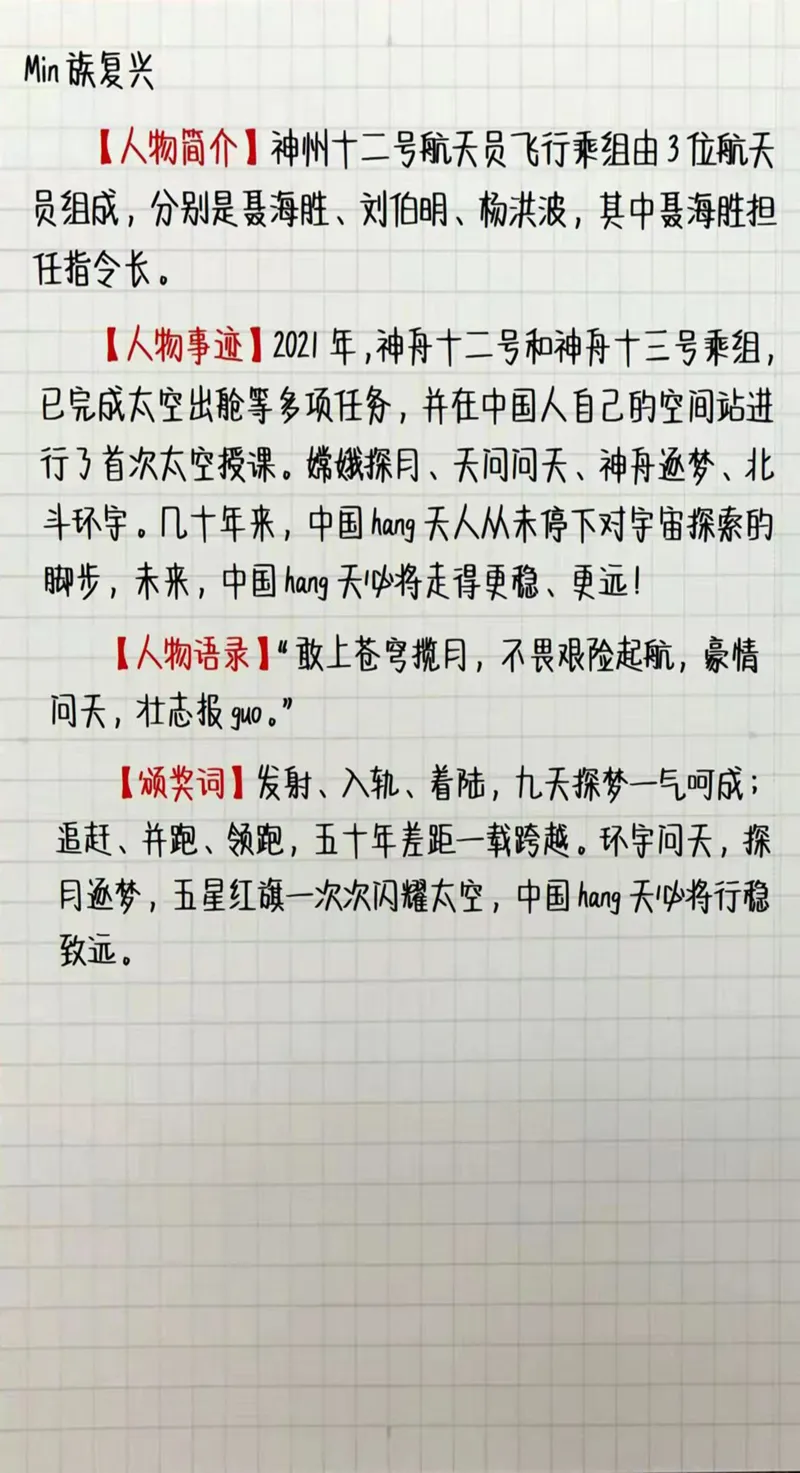 Min族复兴
【人物简介】神州十二号航天员飞行乘组由3位航天
员组成，分别是聂海胜、刘伯明、杨洪波，其中聂海胜担
任指令长。
【人物事迹】2021年,神舟十二号和神舟十三号乘组，
已完成太空出舱等多项任务，并在中国人自己的空间站进
行了首次太空授课。嫦娥探月、天问问天、神舟逐梦、北
斗环宇。几十年来，中国hang天人从未停下对宇宙探索的
脚步，未来，中国hang天必将走得更稳、更远！
【人物语录】“敢上苍穹揽月，不畏艰险起航，豪情
问天，壮志报guo。”
【颁奖词】发射、入轨、着陆，九天探梦一气呵成；
追赶、并跑、领跑，五十年差距一载跨越。环宇问天，探
月逐梦，五星红旗一次次闪耀太空，中国hang天必将行稳
致远。